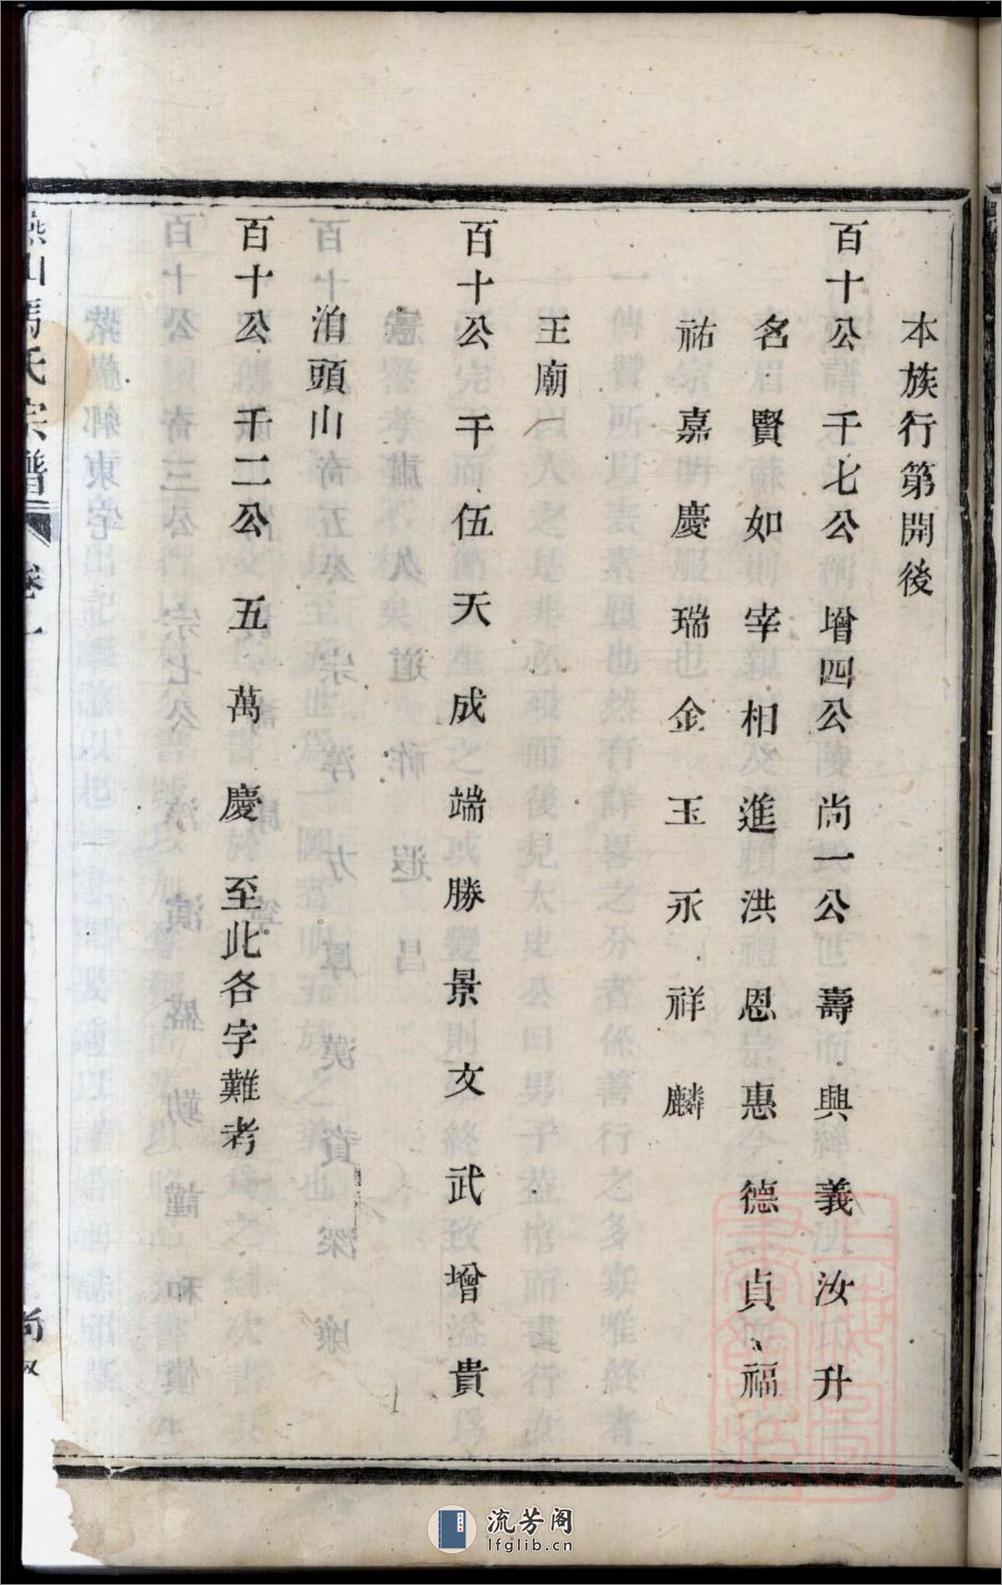 本族行第開後
百十公 千七公 增四公 尚一公 壽 興 義 汝 升
名 賢 如 宰 相 進 洪 恩 惠 德 貞 福
祐 嘉 慶 瑞 金 玉 永 祥 麟
王廟一
百十公 千 伍 天 成 端 勝 景 文 武 增 貴
洎頭山
百十公 千二公 五 萬 慶 至此各字難考
山馮氏宗譜 卷一 尚
流芳阁
lfglib.cn